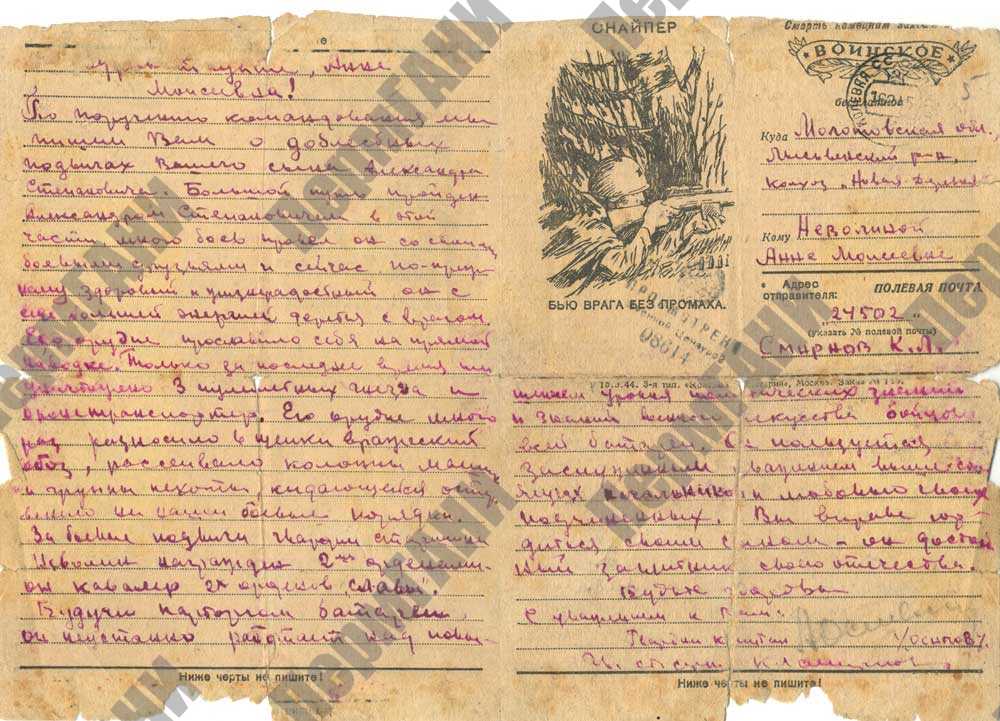 Моисеевна!
По поручению командования мы
пишем Вам о доблестных
подвигах Вашего сына Александра
Степановича. Большой путь пройден
Александром Степановичем в этой
части, много боев провел он со своими
боевыми друзьями и сейчас по-преж-
нему здоровый и жизнерадостный он с
еще большей энергией дерется с врагом.
Его орудие прославило себя на прямой
наводке. Только за последнее время им
уничтожено 3 пулеметных гнезда и
бронетранспортер. Его орудие много
раз разносило в щепки вражеский
обоз, рассеивало колонны машин
и группы пехоты, кидающейся
на наши боевые порядки.
За боевые подвиги гвардии старшина
Неволин награжден 2мя орденами-
он кавалер 2х орденов "Славы".
Будучи парторгом батареи
он неустанно работает над повы-
Ниже черты не пишите!
СНАЙПЕР
БЬЮ ВРАГА БЕЗ ПРОМАХА.
Смерть немецким
ВОИНСКОЕ
бесплатное
Куда Молотовская обл.
Лысьвенский р-н,
колхоз "Новая
Кому Неволиной
Анне Моисеевне
Адрес отправителя: ПОЛЕВАЯ ПОЧТА
"24502"
(указать № полевой почты)
Смирнов К.Л.
ПРОСМОТРЕНО
Военной Цензурой
08614
шением уровня политических знаний
и знаний военного искусства бойцов
всей батареи. Он пользуется
заслуженным уважением вышесто-
ящих начальников и любовью своих
подчиненных. Вы вправе гор-
диться своим сыном - он достой-
ный защитник своего отечества.
Будьте здоровы
С уважением к Вам:
Гвардии капитан /Осипов/
Ниже черты не пишите!
ПермГАНИ